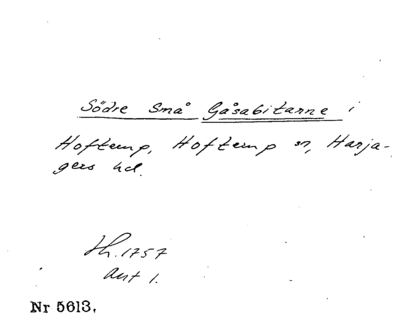 Södre små Gåsabitarne i
Hofterup, Hofterup sn, Harja-
gers hd.
Lh. 1757
Akt 1.
Nr 5613.